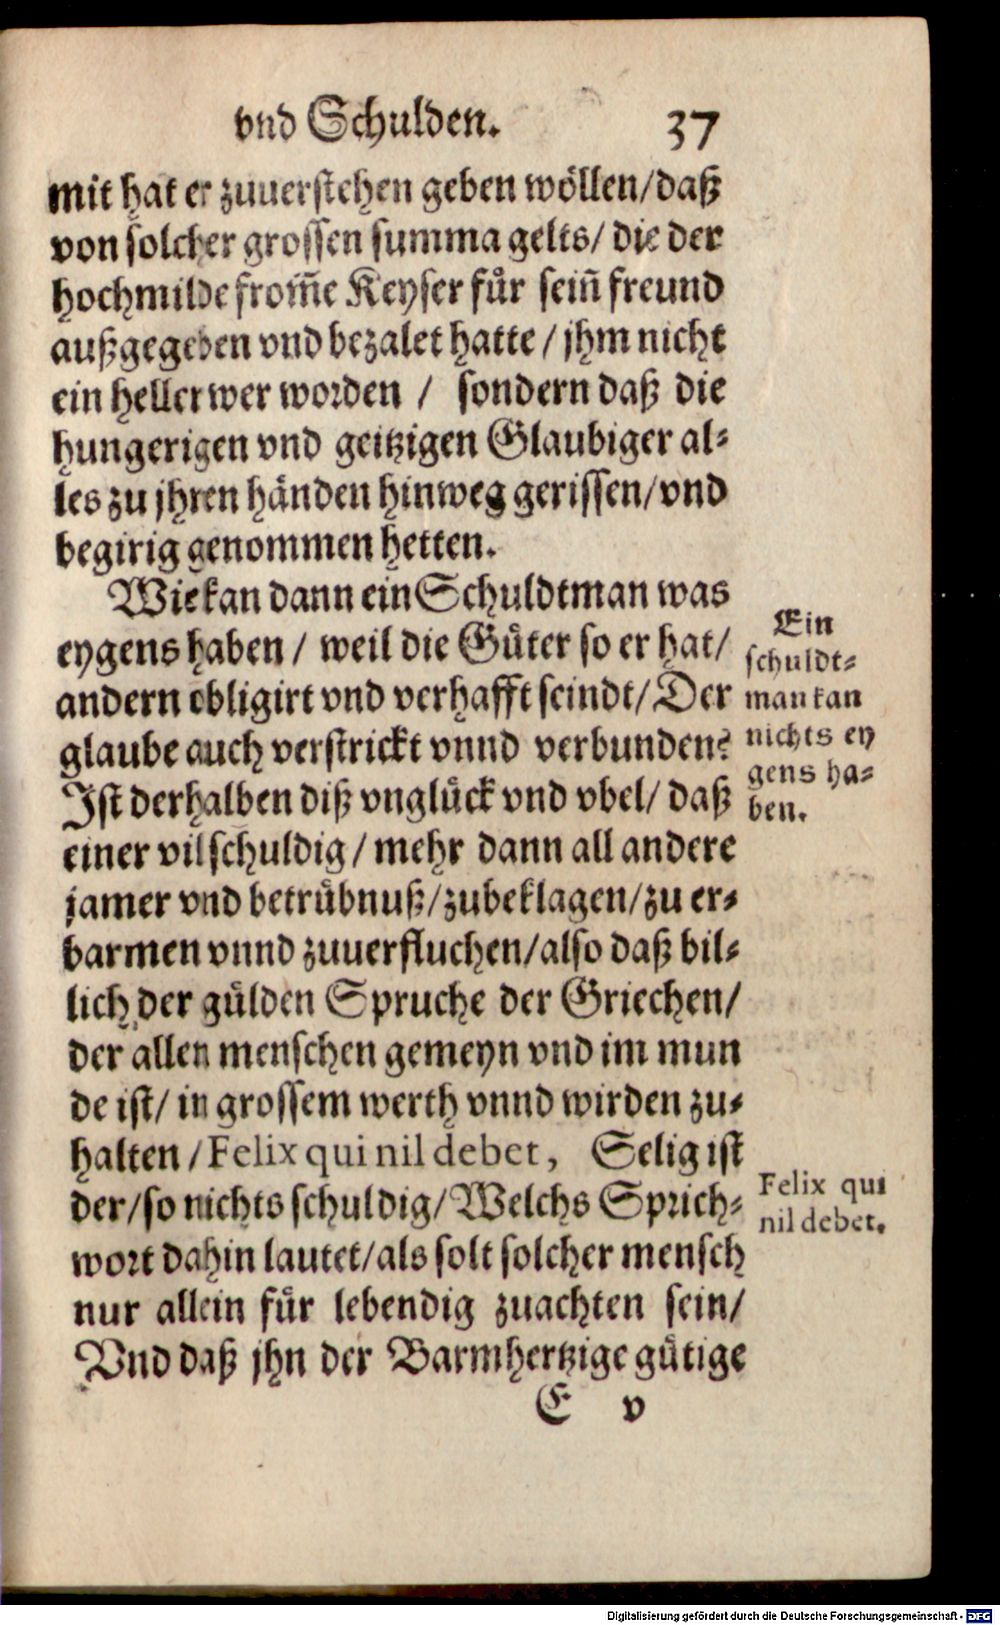 vnd Schulden. 37
mit hat er zuuerstehen geben wöllen/daß
von solcher grossen summa gelts/ die der
hochmilde from̃e Keyser fuͤr sein̄ freund
außgegeben vnd bezalet hatte / jhm nicht
ein heller wer worden / sondern daß die
hungerigen vnd geitzigen Glaubiger al⸗
les zu jhren händen hinweg gerissen/vnd
begirig genommen hetten.
Wie kan dann ein Schuldtman was
eygens haben / weil die Guͤter so er hat/
andern obligirt vnd verhafft seindt/ Der
glaube auch verstrickt vnnd verbunden?
Ist derhalben diß vngluͤck vnd vbel/ daß
einer vil schuldig / mehr dann all andere
jamer vnd betruͤbnuß/zubeklagen/zu er⸗
barmen vnnd zuuerfluchen/also daß bil⸗
lich der guͤlden Spruche der Griechen/
der allen menschen gemeyn vnd im mun
de ist/ in grossem werth vnnd wirden zu⸗
halten / Felix qui nil debet, Selig ist
der/so nichts schuldig/ Welchs Sprich⸗
wort dahin lautet/als solt solcher mensch
nur allein fuͤr lebendig zuachten sein/
Vnd daß jhn der Barmhertzige guͤtige
E v
Ein
schuldt⸗
man kan
nichts ey
gens ha⸗
ben.
Felix qui
nil debet.
Digitalisierung gefördert durch die Deutsche Forschungsgemeinschaft - DFG